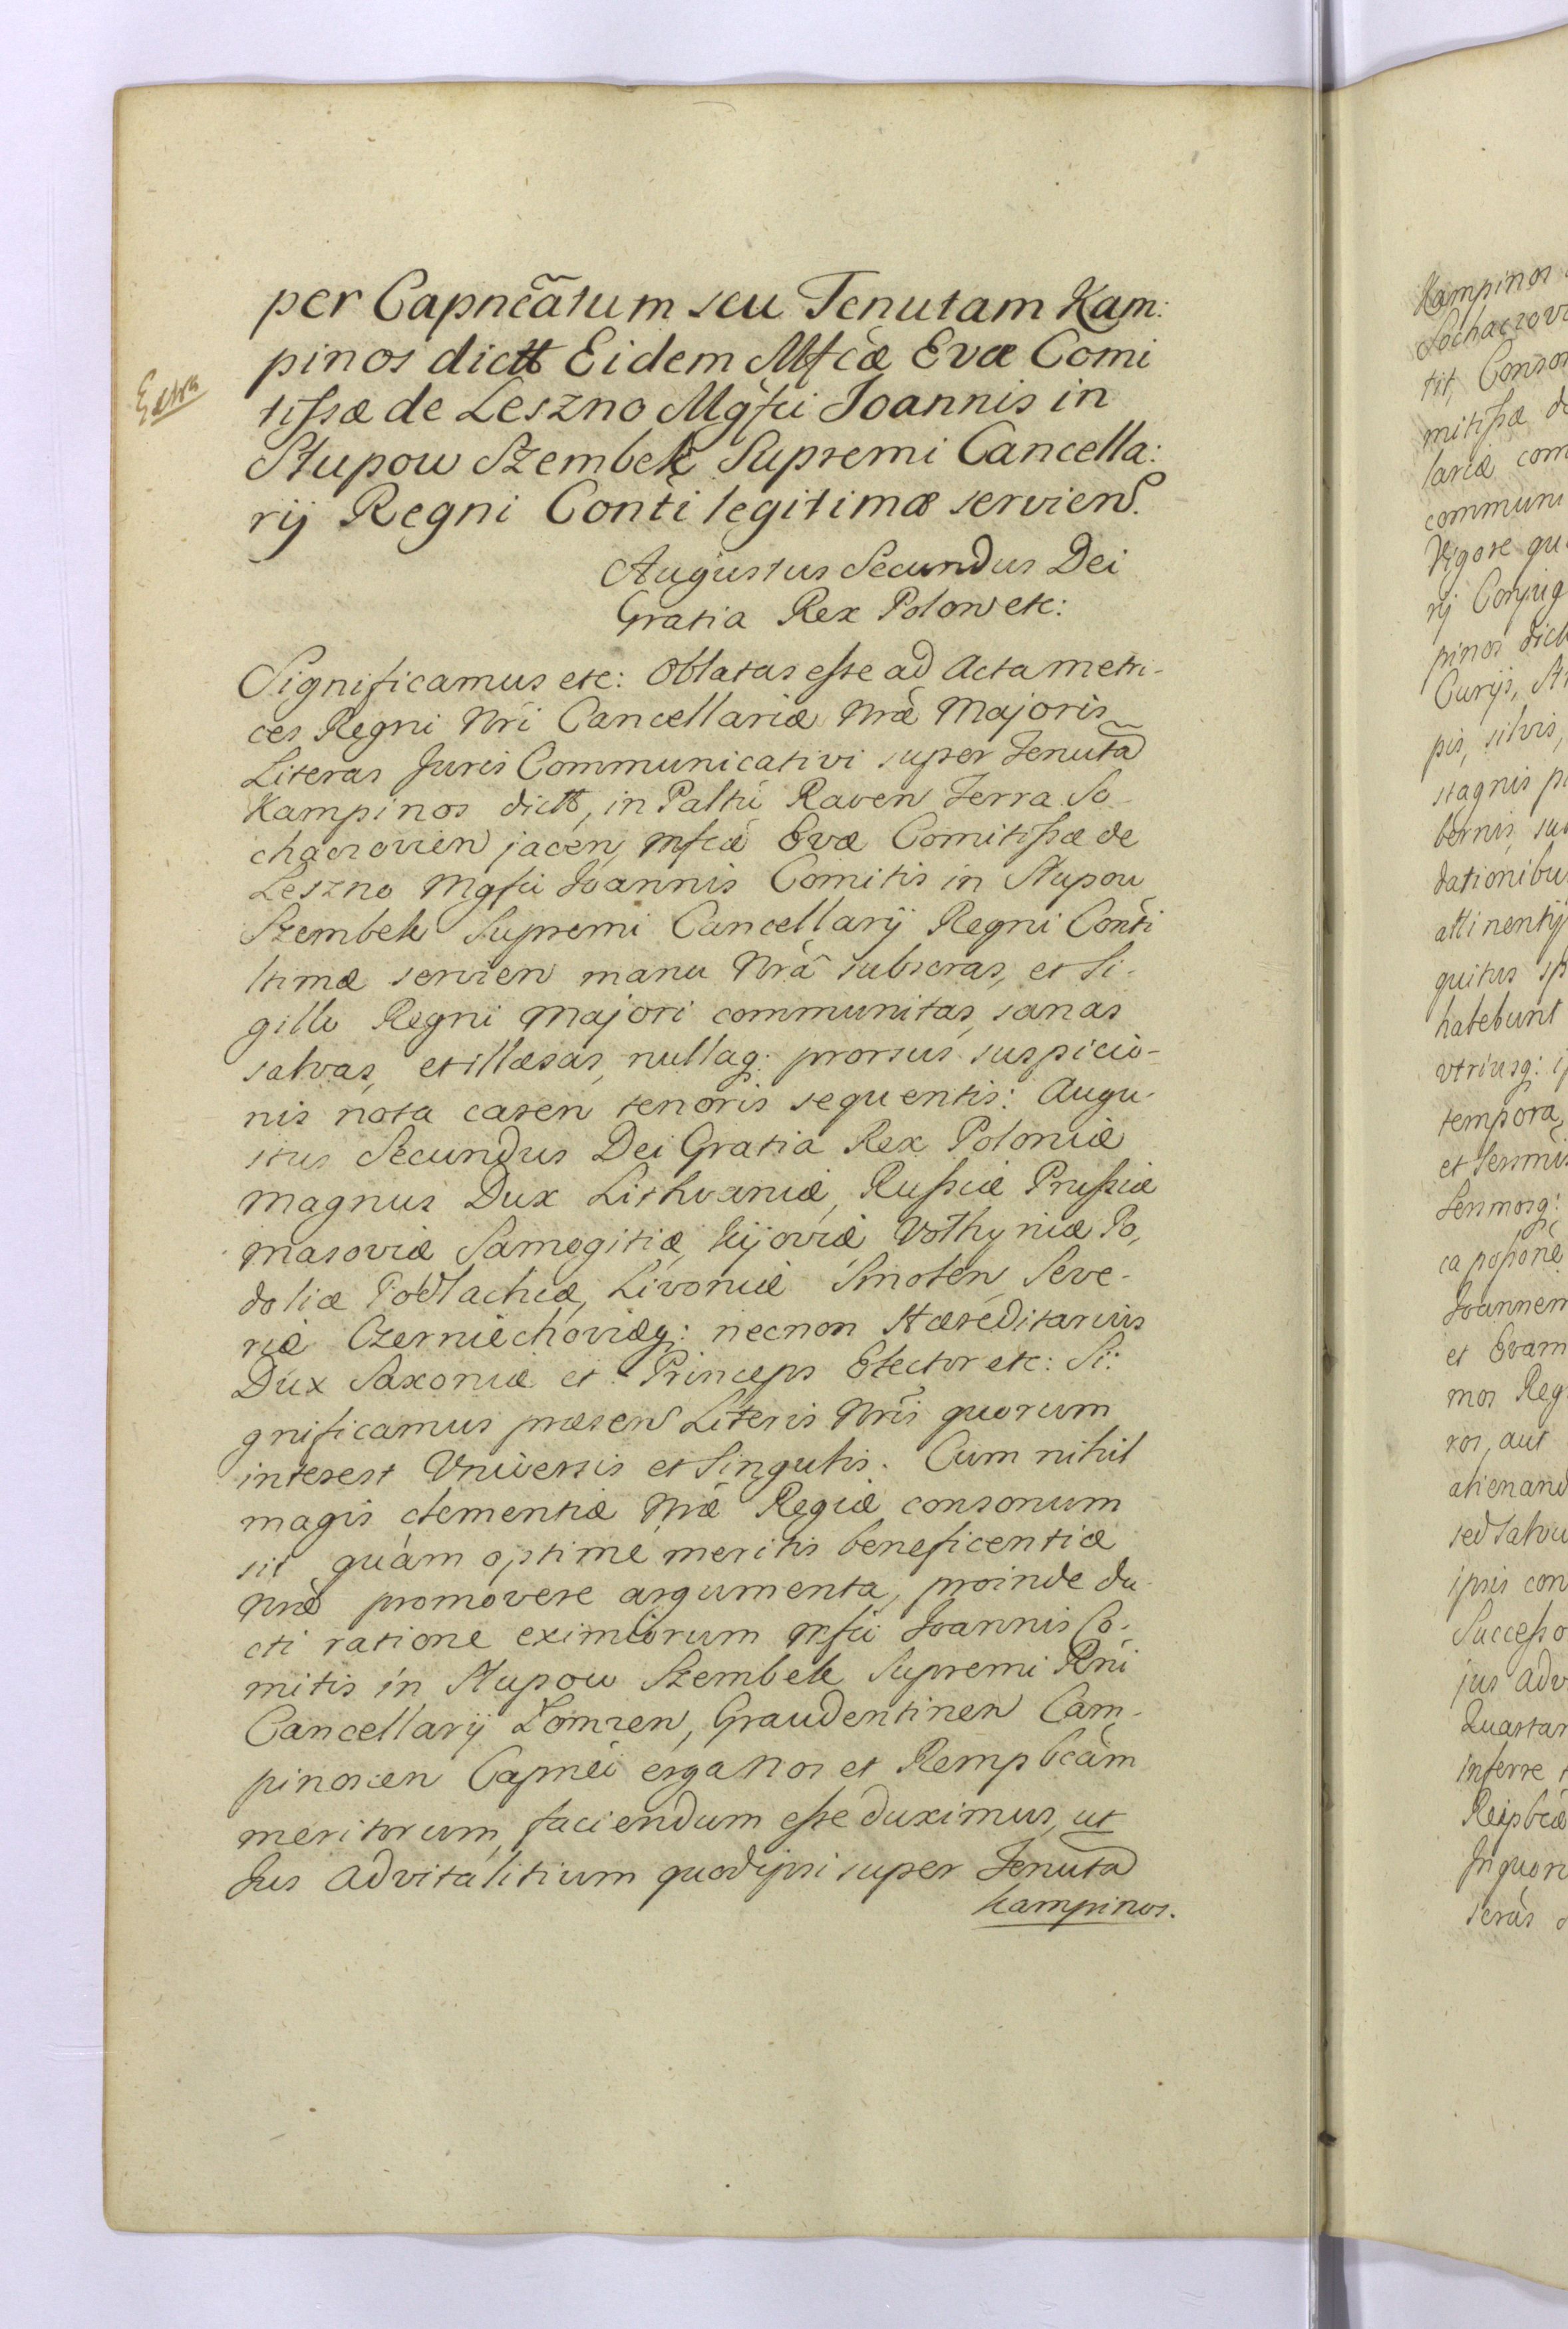 per Capnēãtum seu Tenutam Kam:
pinos dictt Eidem Mfcæ Evæ Comi
tissæ de Leszno Mgfci Joannis in
Słupow Szembek Supremi Cancella:
rij Regni Conti legitimæ servien.
Augustus Secundus Dei
Gratia Rex Polon etc:
Significamus etc: Oblatas esse ad Acta metri-
ces Regni Nri Cancellariæ Nræ Majoris
Literas Juris Communicativi super Tenuta
Kampinos dictt, in Paltu Raven Terra So
chaczovien jacen, Mfcæ Evæ Comitissæ de
Leszno Mgfci Joannis Comitis in Słupow
Szembek Supremi Cancellarij Regni Conti
ltimæ servien manu Nrâ subscras, et Si-
gillo Regni Majori communitas, sanas
salvas, et illæsas, nullaq: prorsus suspicio-
nis nota caren tenoris sequentis: Augu-
stus Secundus Dei Gratia Rex Poloniæ
Magnus Dux Lithvaniæ, Russiæ Prussiæ
Masoviæ Samogitiæ, Kijoviæ Volhyniæ Po,
doliæ Podlachiæ, Livoniæ Smolen, Seve-
riæ Czerniechoviæq: necnon Hæreditarius
Dux Saxoniæ et Princeps Elector etc: Si:
gnificamus præsen Literis Nris quorum
interest Universis et Singulis. Cum nihil
magis clementiæ Nræ Regiæ consonum
sit quàm optime meritis beneficentiæ
Nræ promovere argumenta, proinde du-
cti ratione eximiorum Mfci Joannis Co-
mitis in Słupow Szembek Supremi Rni
Cancellarij Łomzen, Graudentinen Cam-
pinoscen Capnei erga Nos et Rempbcam
meritorum, faciendum esse duximus, ut
Jus advitalitium quod ipsi super Tenuta
Kampinos.
Kampinos
Sochaczov
tit, Conso
mitissæ de
lariæ com
communi
Vigore qu
rij Conjug
pinos dict
Curijs,
pis, silvis,
stagnis
bernis,
dationibu
attinentij
quitus
habebunt
utriusq:
tempora,
et
ca
Joannem
et Evam
mos Reg
ros, aut
alienand
sed salvu
ipsis con
Successo
jus adv
Quartan
inferre
Reipbcæ
In quor